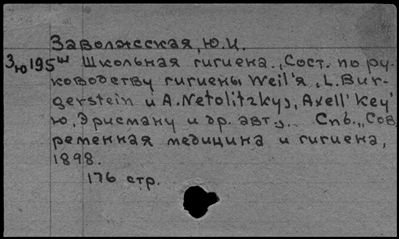 Заволжсская, Ю.И.
Зю195ш Школьная гигиена. „Сост. по ру-
ководству гигиены Weil'я, L. Bur-
gerstein и A. Netolitzky, Axell' Key'
ю, Эрисману и др. авт.„. Спб. „Сов
ременная медицина и гигиена,
1898.
176 стр.